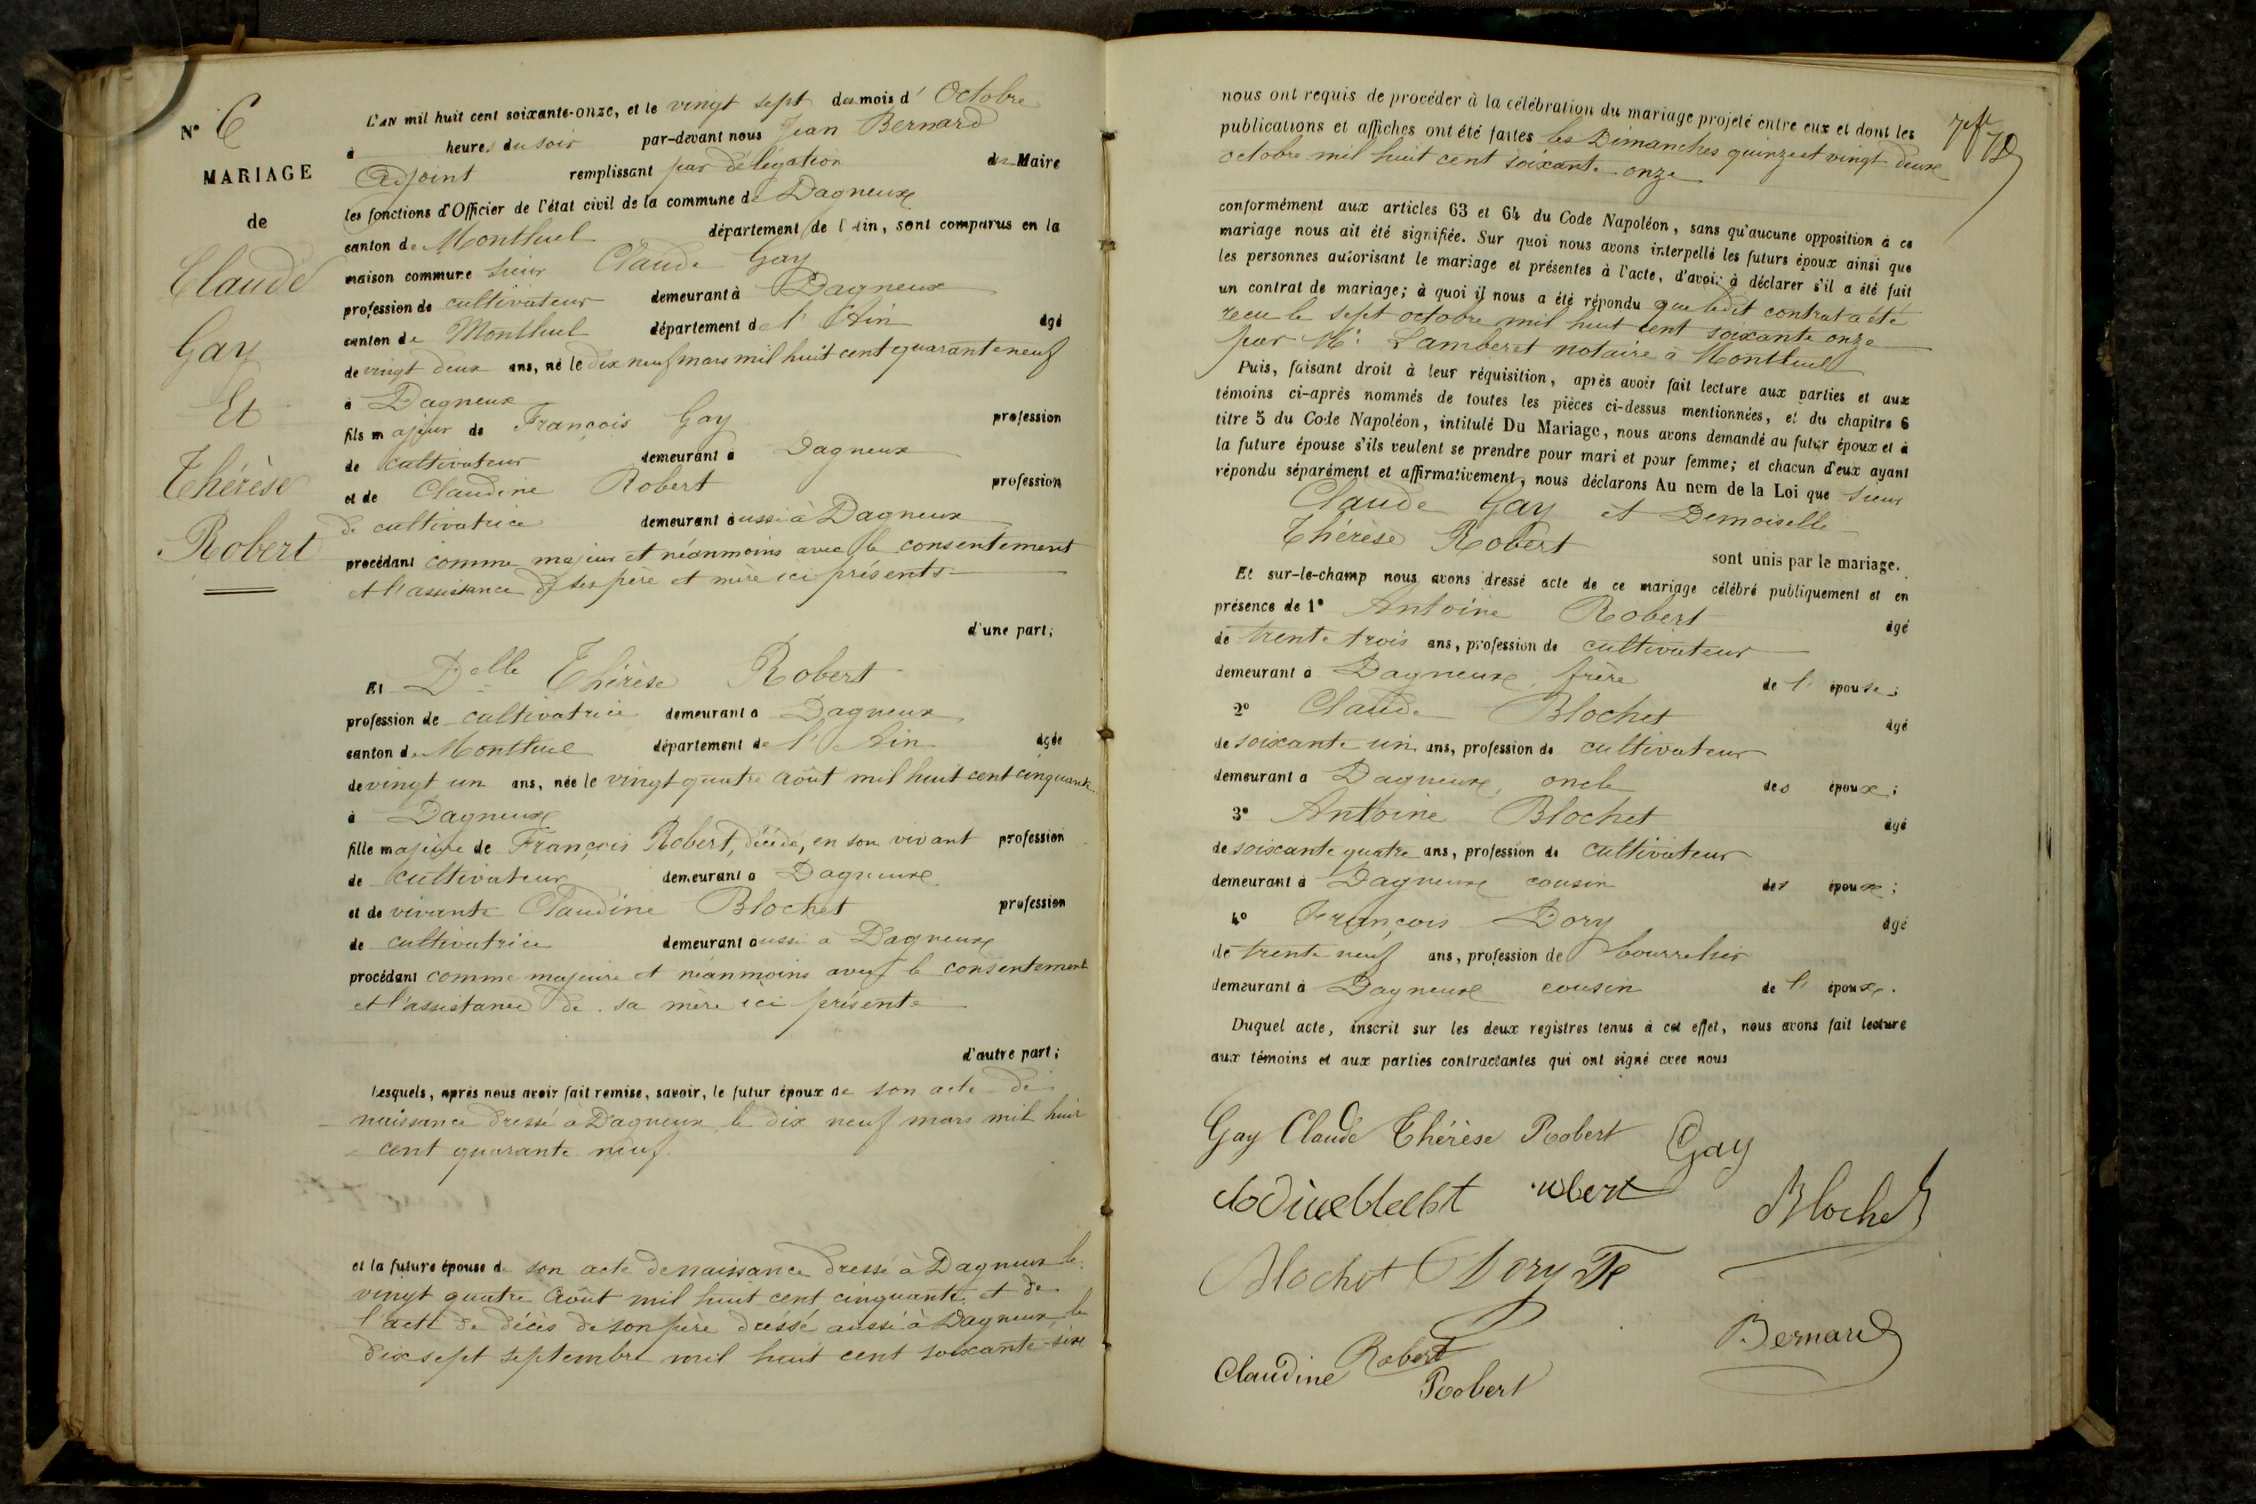 N° 6
MARIAGE
de
Claude
Gay
Et
Thérèse
Robert
L'AN mil huit cent soixante-onze, et le vingt sept du mois d'Octobre
à heures du soir par-devant nous Jean Bernard
Adjoint remplissant par délégation du Maire
les fonctions d'Officier de l'état civil de la commune de Dagneux
canton de Montluel département de l'Ain, sont comparus en la
maison commune sieur Claude Gay
profession de cultivateur demeurant à Dagneux
canton de Montluel département de l'Ain âgé
de vingt deux ans, né le dix neuf mars mil huit cent quarante neuf
à Dagneux
fils majeur de François Gay profession
de cultivateur demeurant à Dagneux
et de Claudine Robert profession
de cultivatrice demeurant aussi à Dagneux
procédant comme majeur et néanmoins avec le consentement
et l'assistance de ses père et mère ici présents
d'une part;
Et Delle Thérèse Robert
profession de cultivatrice demeurant à Dagneux
canton de Montluel département de l'Ain âgée
de vingt un ans, née le vingt quatre août mil huit cent cinquante
à Dagneux
fille majeure de François Robert, décédé, en son vivant profession
de cultivateur demeurant à Dagneux
et de vivante Claudine Blochet profession
de cultivatrice demeurant aussi à Dagneux
procédant comme majeure et néanmoins avec le consentement
et l'assistance de sa mère ici présente
d'autre part;
Lesquels, après nous avoir fait remise, savoir, le futur époux de son acte de
naissance dressé à Dagneux le dix neuf mars mil huit
cent quarante neuf.
et la future épouse de son acte de naissance dressé à Dagneux le
vingt quatre août mil huit cent cinquante et de
l'acte de décès de son père dressé aussi à Dagneux le
dix sept septembre mil huit cent soixante-six
nous ont requis de procéder à la célébration du mariage projeté entre eux et dont les
publications et affiches ont été faites les Dimanches quinze et vingt deux
octobre mil huit cent soixante onze
conformément aux articles 63 et 64 du Code Napoléon, sans qu'aucune opposition à ce
mariage nous ait été signifiée. Sur quoi nous avons interpellé les futurs époux ainsi que
les personnes autorisant le mariage et présentes à l'acte, d'avoir à déclarer s'il a été fait
un contrat de mariage; à quoi il nous a été répondu que ledit contrat a été
reçu le sept octobre mil huit cent soixante onze
par Me Lamberet notaire à Montluel
Puis, faisant droit à leur réquisition, après avoir fait lecture aux parties et aux
témoins ci-après nommés de toutes les pièces ci-dessus mentionnées, et du chapitre 6
titre 5 du Code Napoléon, intitulé Du Mariage, nous avons demandé au futur époux et à
la future épouse s'ils veulent se prendre pour mari et pour femme; et chacun d'eux ayant
répondu séparément et affirmativement, nous déclarons Au nom de la Loi que sieur
Claude Gay et Demoiselle
Thérèse Robert
sont unis par le mariage.
Et sur-le-champ nous avons dressé acte de ce mariage célébré publiquement et en
présence de 1° Antoine Robert âgé
de trente trois ans, profession de cultivateur
demeurant à Dagneux, frère de l'épouse;
2° Claude Blochet âgé
de soixante un ans, profession de cultivateur
demeurant à Dagneux, oncle des époux;
3° Antoine Blochet âgé
de soixante quatre ans, profession de cultivateur
demeurant à Dagneux cousin des époux;
4° François Dory âgé
de trente neuf ans, profession de bourrelier
demeurant à Dagneux cousin de l'époux.
Duquel acte, inscrit sur les deux registres tenus à cet effet, nous avons fait lecture
aux témoins et aux parties contractantes qui ont signé avec nous
Gay Claude Thérèse Robert Gay
Blochet
Blochet Dory
Bernard
Claudine Robert
Robert